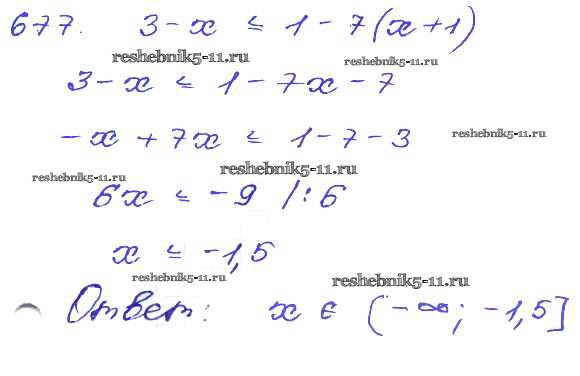 677. 3 - x ≤ 1 - 7(x+1)
reshebnik5-11.ru reshebnik5-11.ru
3 - x ≤ 1 - 7x - 7
-x + 7x ≤ 1 - 7 - 3 reshebnik5-11.ru
reshebnik5-11.ru reshebnik5-11.ru
6x ≤ -9 /:6
x ≤ -1,5
reshebnik5-11.ru reshebnik5-11.ru
Ответ: x ∈ (-∞; -1,5]